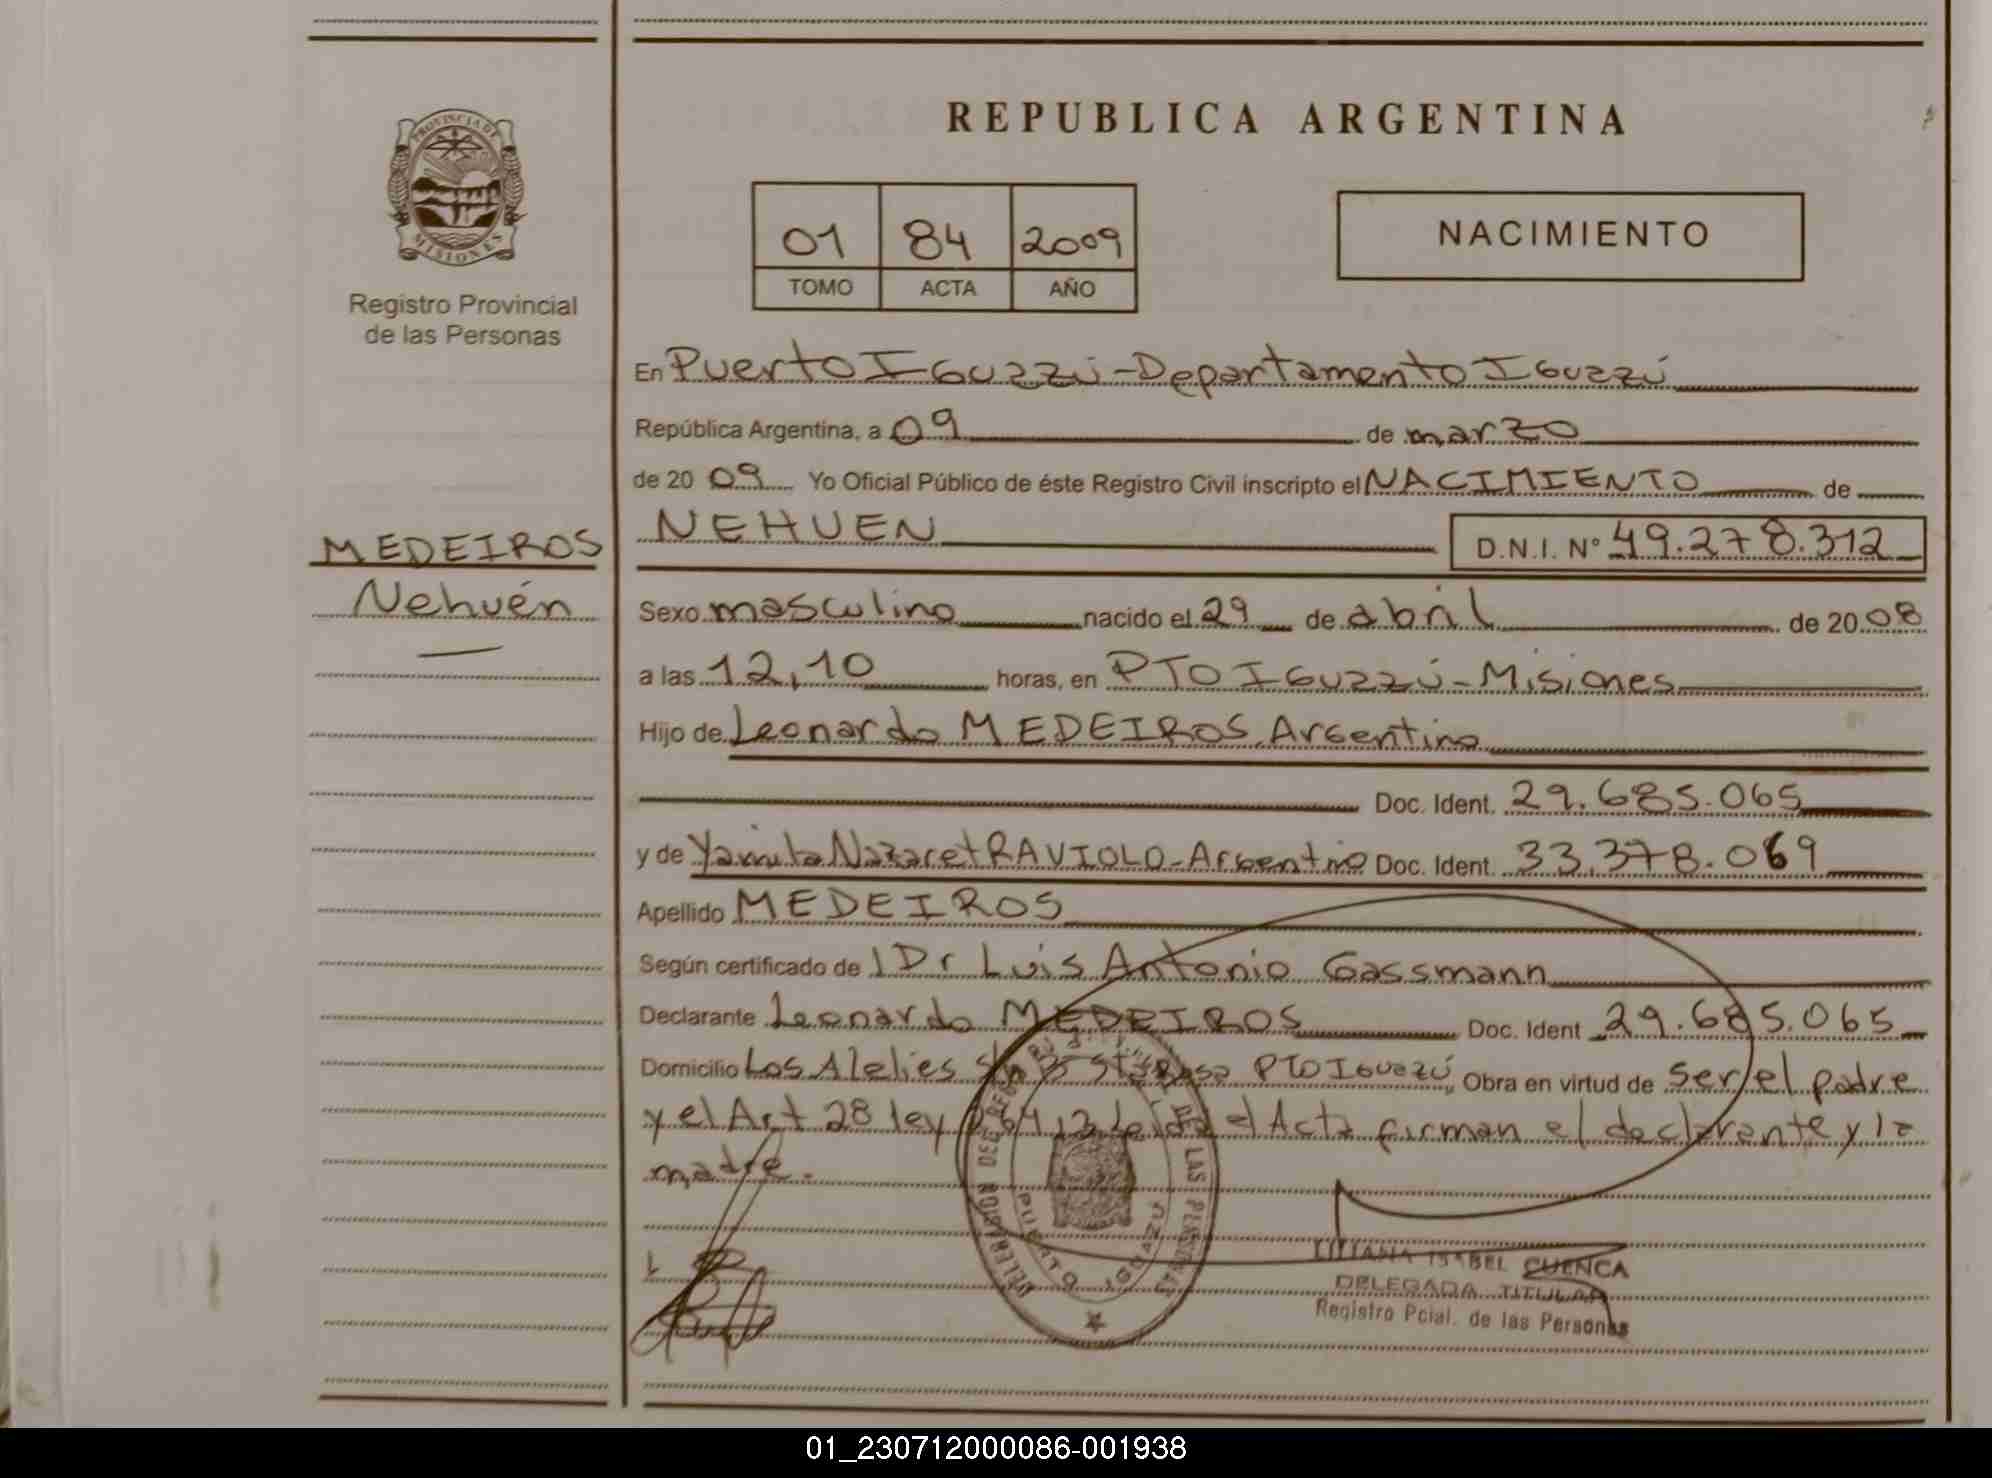 REPUBLICA ARGENTINA
PROVINCIA DE
MISIONES
Registro Provincial
de las Personas
01 84 2009
TOMO ACTA AÑO
NACIMIENTO
En Puerto Iguazú - Departamento Iguazú
República Argentina, a 09 de marzo
de 20 09 Yo Oficial Público de éste Registro Civil inscripto el NACIMIENTO de
MEDEIROS
Nehuén
NEHUEN D.N.I. Nº 49.278.312
Sexo masculino nacido el 29 de abril de 20 08
a las 12,10 horas, en PTO Iguazú - Misiones
Hijo de Leonardo MEDEIROS, Argentino
Doc. Ident. 29.685.065
y de Yamila Nazaret RAVIOLO - Argentina Doc. Ident. 33.378.069
Apellido MEDEIROS
Según certificado de Dr Luis Antonio Gassmann
Declarante Leonardo MEDEIROS Doc. Ident 29.685.065
Domicilio Los Alelies PTO Iguazú Obra en virtud de ser el padre
y el Art 28 ley Leída el Acta firman el declarante y la
madre.
DELEGACION DEL REGISTRO DE LAS PERSONAS
PUERTO IGUAZU
LILIANA ISABEL CUENCA
DELEGADA TITULAR
Registro Pcial. de las Personas
01_230712000086-001938